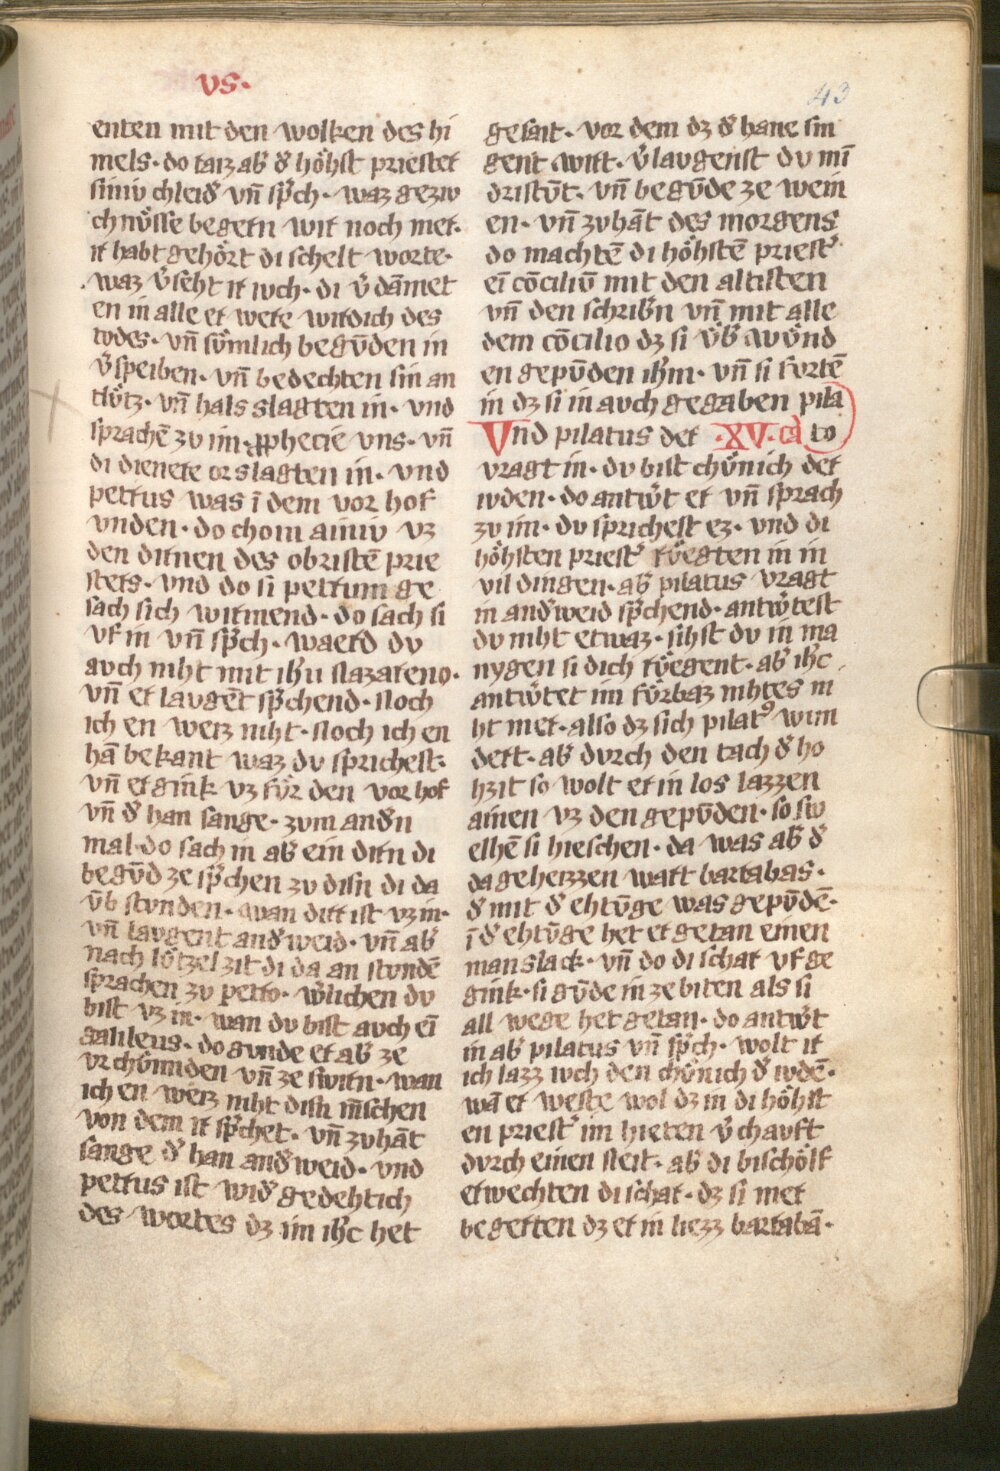 vs.
43
enten mit den wolken des hi
mels. do taiz ab͛ d͛ hoͤhst priester
siniv chleid͛ vn̄ sp͛ch. waz geziv
chnuͤsse begern wir noch mer.
ir habt gehoͤrt di schelt worte.
waz v͛seht ir ivch. di v͛dam̄et
en in alle er were wirdich des
todes. vn̄ suͤmlich begv̄den in
v͛speiben. vn̄ bedechten sin an
tluͤtz. vn̄ hals slagten in. vnd
sprachē zv im. ꝓphecie vns. vn̄
di dienere orslagten in. vnd
petrus was ī dem vor hof
vnden. do chom ainiv vz
den dirnen des obristē prie
sters. vnd do si petrum ge
sach sich wirmend. do sach si
vf in vn̄ sp͛ch. waerd dv
avch niht mit ih̄u Nazareno.
vn̄ er lavgēt sp͛chend. Noch
ich en weiz niht. Noch ich en
hā bekant waz dv sprichest.
vn̄ er gink vz fuͤr den vor hof
vn̄ d͛ han sange. zvm and͛n
mal. do sach in ab͛ ein dirn di
begv̄d ze sp͛chen zv disn̄ di da
v̄b stvnden. wan dirr ist vz in.
vn̄ lavgent and͛weid. vn̄ ab͛
nach luͤtzel zit di da an stvndē
sprachen zv petro. w͛lichen dv
bist vz in. wan dv bist avch eī
galileus. do gvnde er ab͛ ze
vrchuͤnden vn̄ ze swirn. wan
ich en weiz niht disn̄ m̄schen
von dem ir sp͛chet. vn̄ zvhāt
sange d͛ han and͛weid. vnd
petrus ist wid͛ gedehtich
des wortes dz im ih̄c het
gesait. vor dem dz d͛ hane sin
gent wirt. v͛lavgenst dv mī
dristv̄t. vn̄ begv̄de ze wein
en. vn̄ zvhāt des morgens
do machtē di hoͤhstē priest͛
eī cōciliv̄ mit den altisten
vn̄ den schrib͛n vn̄ mit alle
dem cōcilio dz si v̄b͛ wuͤnd
en gepv̄den ih̄m. vn̄ si fvrtē
in dz si in avch gegaben pila
Vnd pilatus der .XV. cā to
vragt in. dv bist chuͤnich der
ivden. do antw͛t er vn̄ sprach
zv im. dv sprichest ez. vnd di
hoͤhsten priest͛ rv̊egten in in
vil dingen. ab͛ pilatus vragt
in and͛weid sp͛chend. antw͛test
dv niht etwaz. sihst dv in ma
nygen si dich rv̊egent. ab͛ ih̄c
antw͛tet im fuͤrbaz nihtes ni
ht mer. also dz sich pilatꝰ wun
dert. ab͛ dvrch den tach d͛ ho
hzit so wolt er in los lazzen
ainen vz den gepv̄den. so sw
elhē si hieschen. da was ab͛ d͛
da geheizzen wart barrabas.
d͛ mit d͛ ehtv̄ge was gepv̄dē.
ī d͛ ehtv̄ge het er getan einen
manslack. vn̄ do di schar vf ge
gink. si gv̄de in ze biten als si
all wege het getan. do antw͛t
in ab͛ pilatus vn̄ sp͛ch. wolt ir
ich lazz ivch den chuͤnich d͛ ivdē.
wā er weste wol dz in di hoͤhst
en priest͛ im hieten v͛chavft
dvrch einen neit. ab͛ di bischoͤlf
erwechten di schar. dz si mer
begerten dz er in liezz barrabā.